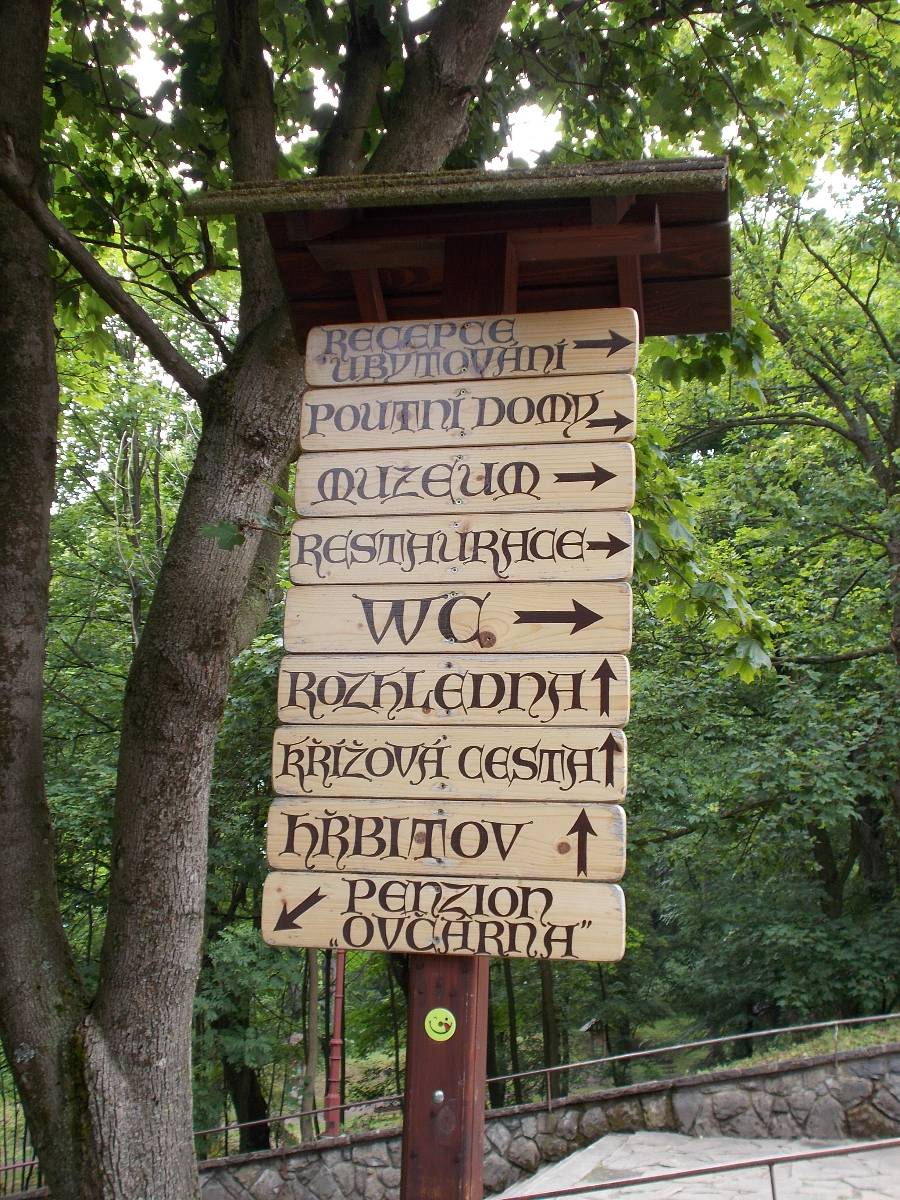 RECEPCE
UBYTOVÁNÍ
POUTNÍ DOMY
MUZEUM
RESTAURACE
WC
ROZHLEDNA
KŘÍŽOVÁ CESTA
HŘBITOV
PENZION
„OVČÁRNA”